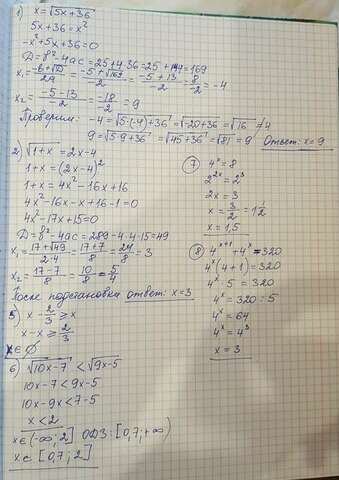 1) x = √5x+36
5x+36 = x²
-x²+5x+36=0
Д = b²-4ac = 25+4·36=25+144=169
x₁= -b+√Д/2a = -5+√169/-2 = -5+13/-2 = 8/-2 = -4
x₂ = -5-13/-2 = -18/-2 = 9
Проверим: -4 = √5·(-4)+36 = √-20+36 = √16 ≠ 4
9 = √5·9+36 = √45+36 = √81 = 9 Ответ: x=9
2) √1+x = 2x-4
1+x = (2x-4)²
1+x = 4x²-16x+16
4x²-16x-x+16-1=0
4x²-17x+15=0
Д = b²-4ac = 289-4·4·15=49
x₁ = 17+√49/2·4 = 17+7/8 = 24/8 = 3
x₂ = 17-7/8 = 10/8 = 5/4
После подстановки ответ: x=3
5) x - 2/3 ≥ x
x-x ≥ 2/3
x ∈ ∅
6) √10x-7 < √9x-5
10x-7 < 9x-5
10x-9x < 7-5
x < 2
x ∈ (-∞; 2] ОДЗ: [0,7; +∞)
x ∈ [0,7; 2]
7) 4ˣ = 8
2²ˣ = 2³
2x = 3
x = 3/2 = 1 1/2
x = 1,5
8) 4ˣ⁺¹ + 4ˣ = 320
4ˣ(4+1) = 320
4ˣ · 5 = 320
4ˣ = 320 : 5
4ˣ = 64
4ˣ = 4³
x = 3